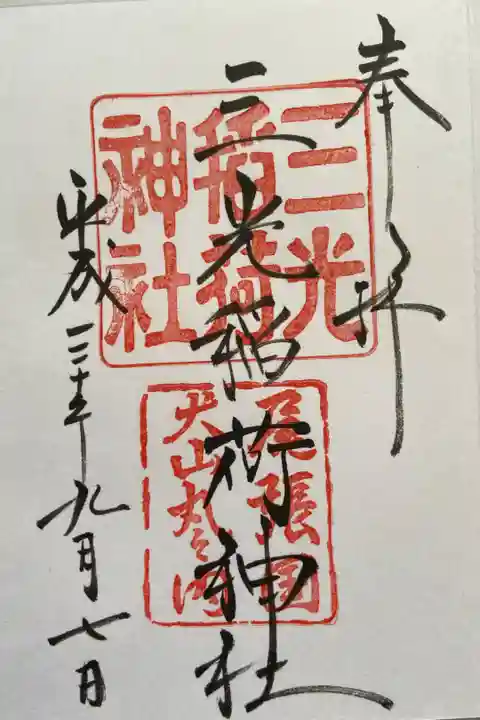 奉拝
三光稲荷神社
平成三十年九月七日
三光
稲荷
神社
尾張国
犬山丸之内